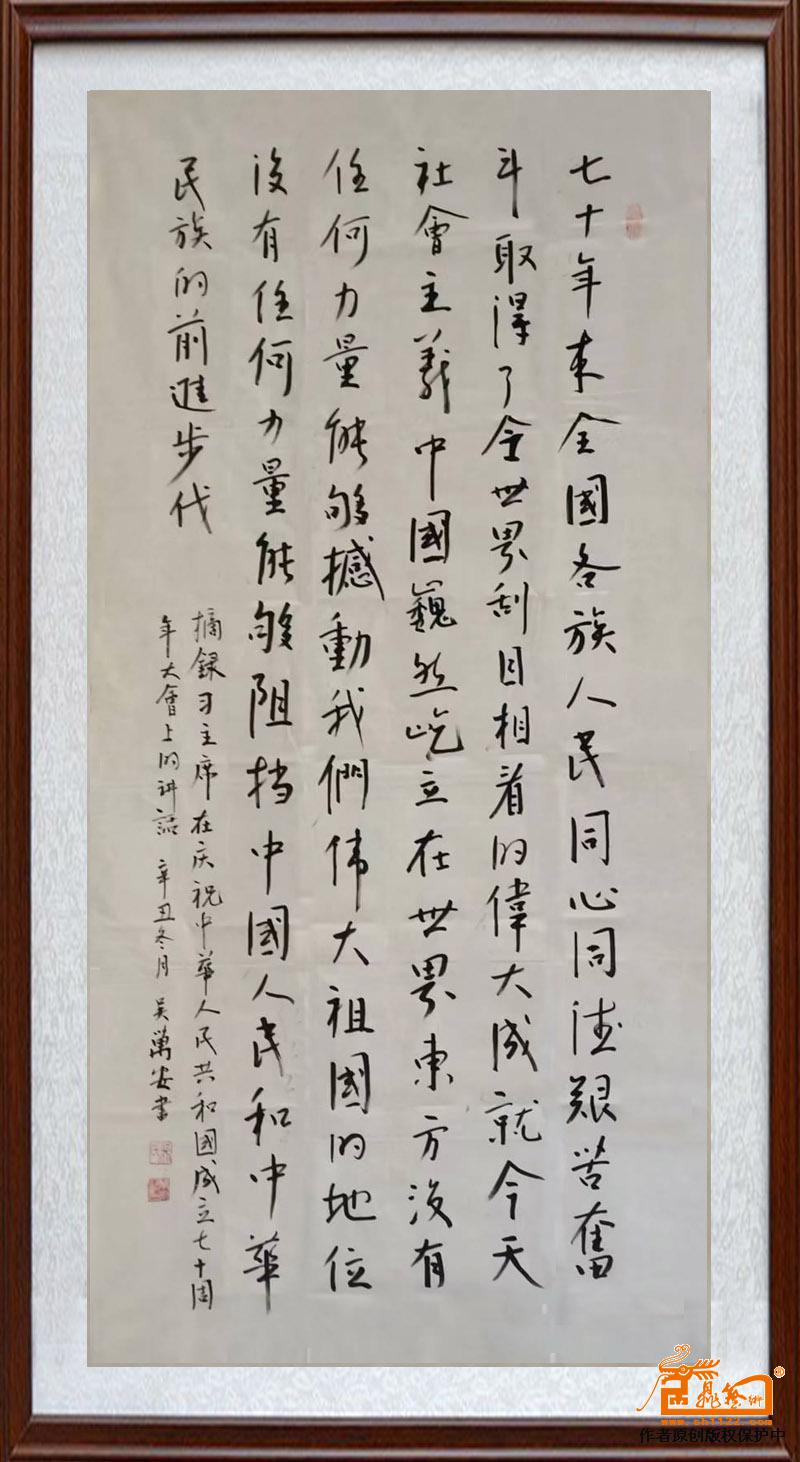 七十年来全國各族人民同心同德艱苦奮
斗取得了全世界刮目相看的偉大成就今天
社會主義中國巍然屹立在世界東方没有
任何力量能够撼動我們偉大祖國的地位
没有任何力量能够阻挡中國人民和中華
民族的前進步伐
摘録习主席在庆祝中華人民共和國成立七十周
年大會上的讲話 辛丑冬月 吴萬安書
www.sh1122.com
作者原创版权保护中